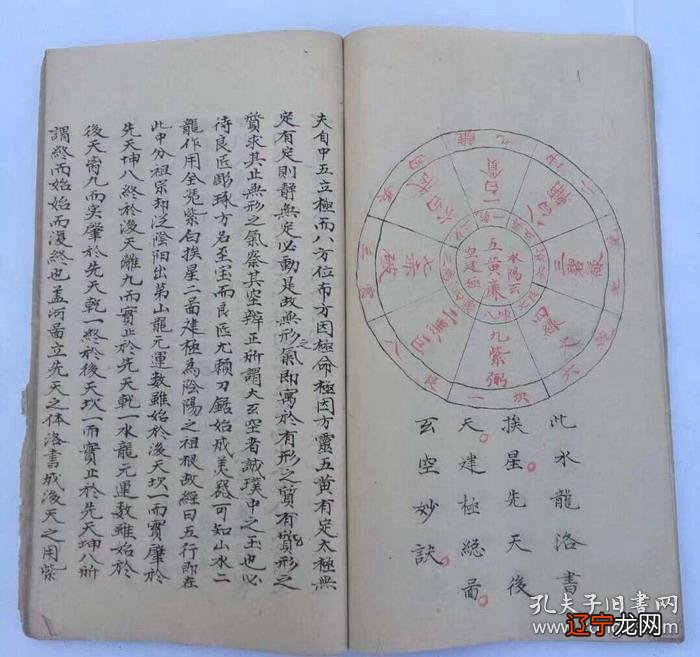 此水龍洛書
挨星先天後
天建極緫圖
玄空妙訣
夫自中五立極而八方位布方因極命極因方靈五黃有定太極無
定有定則靜無定必動是故無形之氣即寓於有形之質有質形之
質求其止無形之氣察其空辨正所謂大玄空者誠璞中之玉也必
待良匠彫琢方名至宝而良匠尤頼刀鋸始成美器可知山水二
龍作用全凴紫白挨星二圖建極為陰陽之祖根故經曰五行即在
此中分祖宗却泛陰陽出第山龍元運数雖始於後天坎一而實肇於
先天坤八終於後天離九而實止於先天乾一水龍元運数雖始於
後天离九而实肇於先天乾一終於後天坎一而實止於先天坤八所
謂終而始始而復終也盖河圖立先天之体洛書成後天之用紫
水陽玄
五黃廉
空建極
九紫弼
一白貪
三碧祿
四綠文
六白武
七赤破
坎
一
八
六
九
離
三
孔夫子旧書网
辽宁龙网